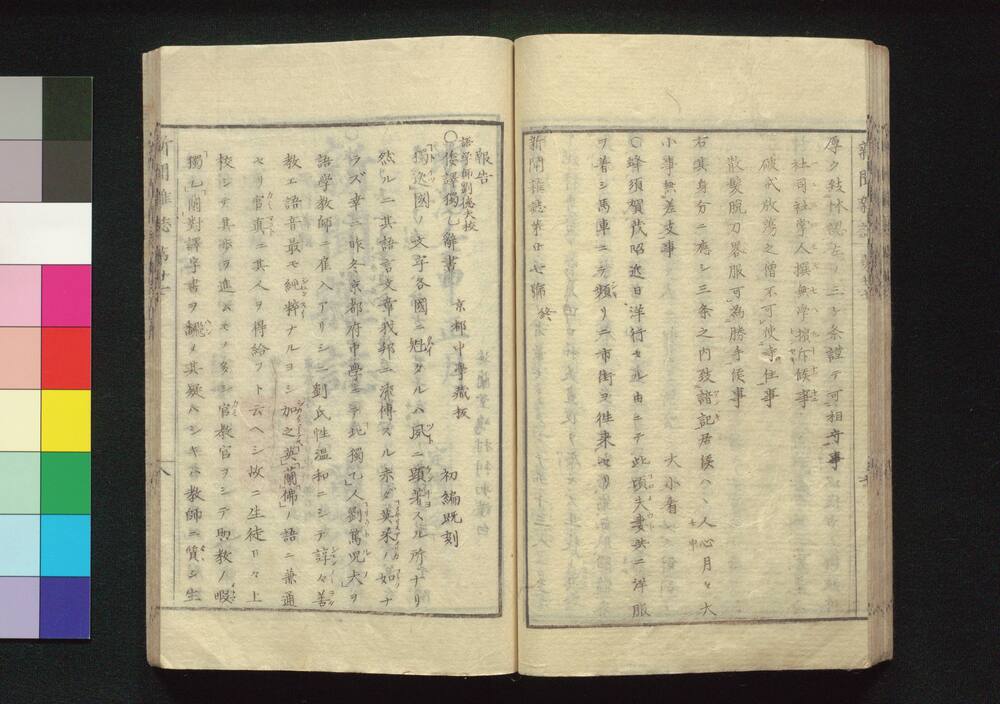 厚ク
社司社掌人撰無学擯斥候事
破戒放蕩之僧不可使寺住事
散髪脱刀畧服可為勝手候事
右其身分ニ応シ三条之内致諸記居候ハヽ人心月々大
小事無差支事
大小看
〇蜂須賀茂昭近日洋行セル由ニテ此頃夫妻共ニ洋服
ヲ着シ馬車ニテ頻リニ市街ヲ往来セリ
新聞雑誌第廿七号 終
報告
語学師劉徳大校
〇倭譯獨乙辭書 京都中学蔵板 初編既刻
獨逸國ノ文学各國ニ魁タルハ夙ニ顕著スル所ナリ
然ルニ其語言文章我邦ニ流傳スル未タ英米ノ如ナ
ラズ幸ニ昨冬京都府中學ニ於此獨乙人劉篤児夫ヲ
語学教師ニ雇入アリシニ劉氏性温和ニシテ諄々善
教エ語音最モ純粋ナルヨシ加之英蘭佛ノ語ニ兼通
セリ官真ニ其人ヲ得給フト云ヘシ故ニ生徒日々上
校シテ其歩ヲ進ムモノ多シ官教官ヲシテ助教ノ暇
獨乙蘭對譯字書ヲ飜シ其疑ハシキハ教師ニ質シ生
新聞雑誌
八